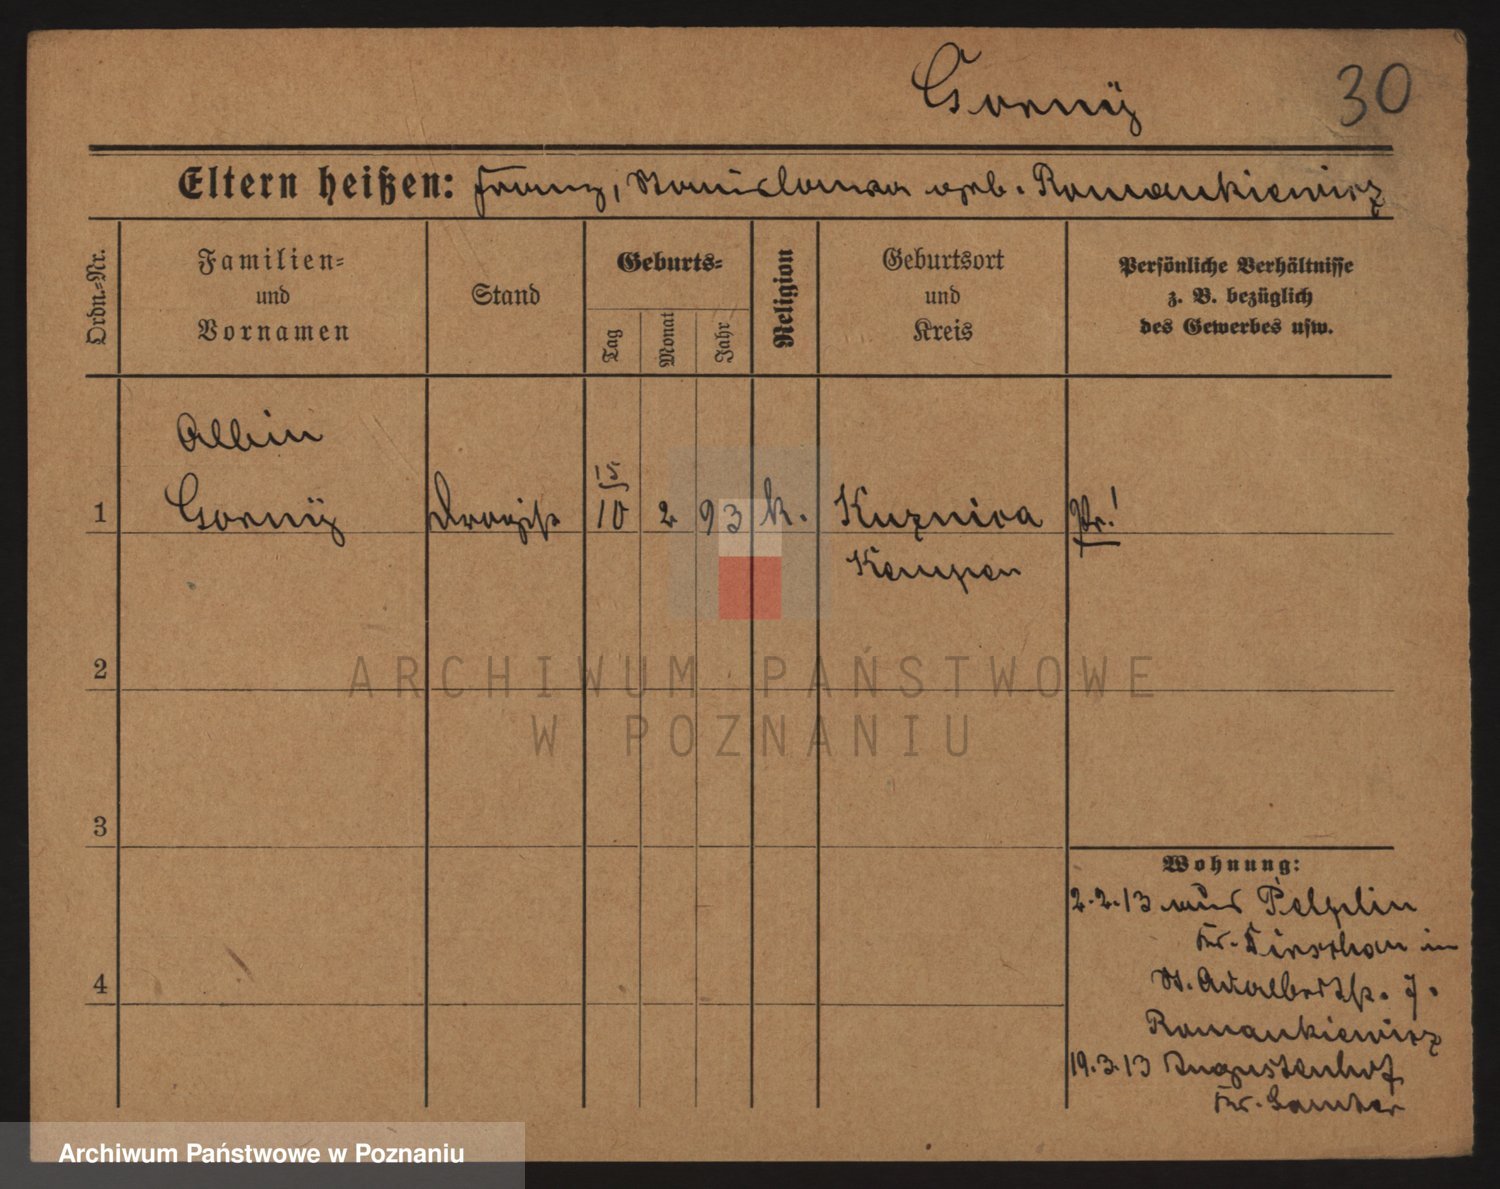 Gorny
30
Eltern heißen: Franz, Stanislawa geb. Romankiewicz
Ordn.-Nr.
Familien-
und
Vornamen
Stand
Geburts-
Tag
Monat
Jahr
Religion
Geburtsort
und
Kreis
Persönliche Verhältnisse
z. B. bezüglich
des Gewerbes usw.
Albin
1 Gorny Drogist 10 2 93 k. Kuznica Pr.!
Kempen
2
3
4
Wohnung:
2.2.13 aus Pelplin
Kr. Dirschau in
St. Adalbertstr. 7.
Romankiewicz
19.3.13 Augustenhof
Kr. Samter
ARCHIWUM PAŃSTWOWE
W POZNANIU
Archiwum Państwowe w Poznaniu